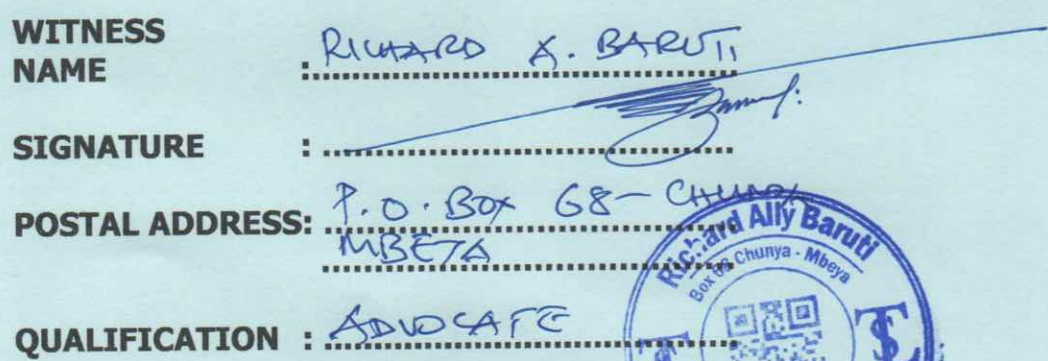 WITNESS
NAME : RICHARD A. BARUTI
SIGNATURE :
POSTAL ADDRESS: P.O. BOX 68 - CHUNYA
MBEYA
QUALIFICATION : ADVOCATE
Richard Ally Baruti
Box 68 Chunya - Mbeya
TLS